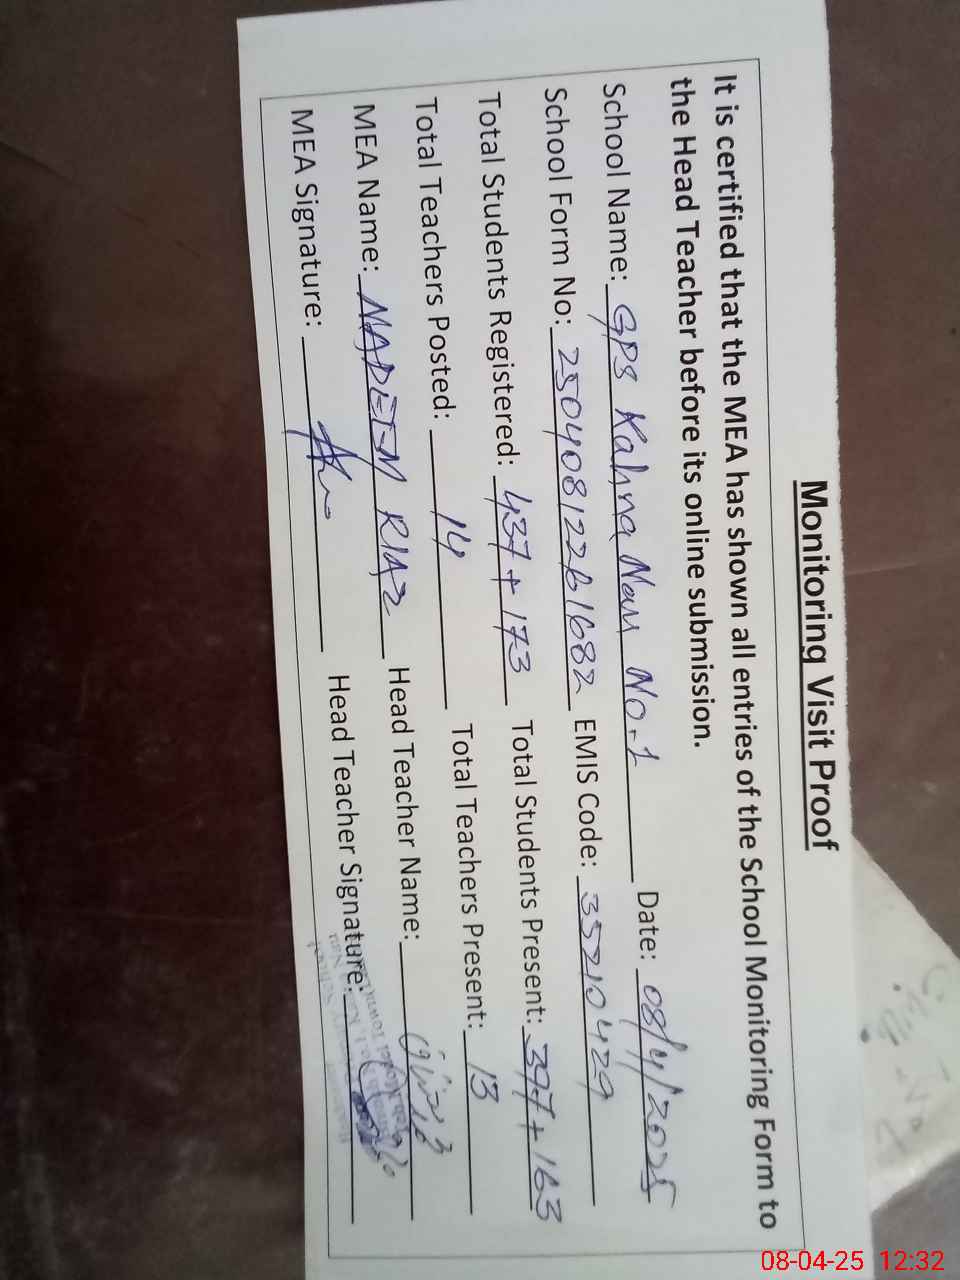 Monitoring Visit Proof
It is certified that the MEA has shown all entries of the School Monitoring Form to
the Head Teacher before its online submission.
School Name: GPS Kahna Nau No.1 Date: 08/4/2025
School Form No: 25040812261682 EMIS Code: 35210429
Total Students Registered: 437 + 173 Total Students Present: 397 + 163
Total Teachers Posted: 14 Total Teachers Present: 13
MEA Name: NADEEM RIAZ Head Teacher Name:
MEA Signature: Head Teacher Signature:
08-04-25 12:32